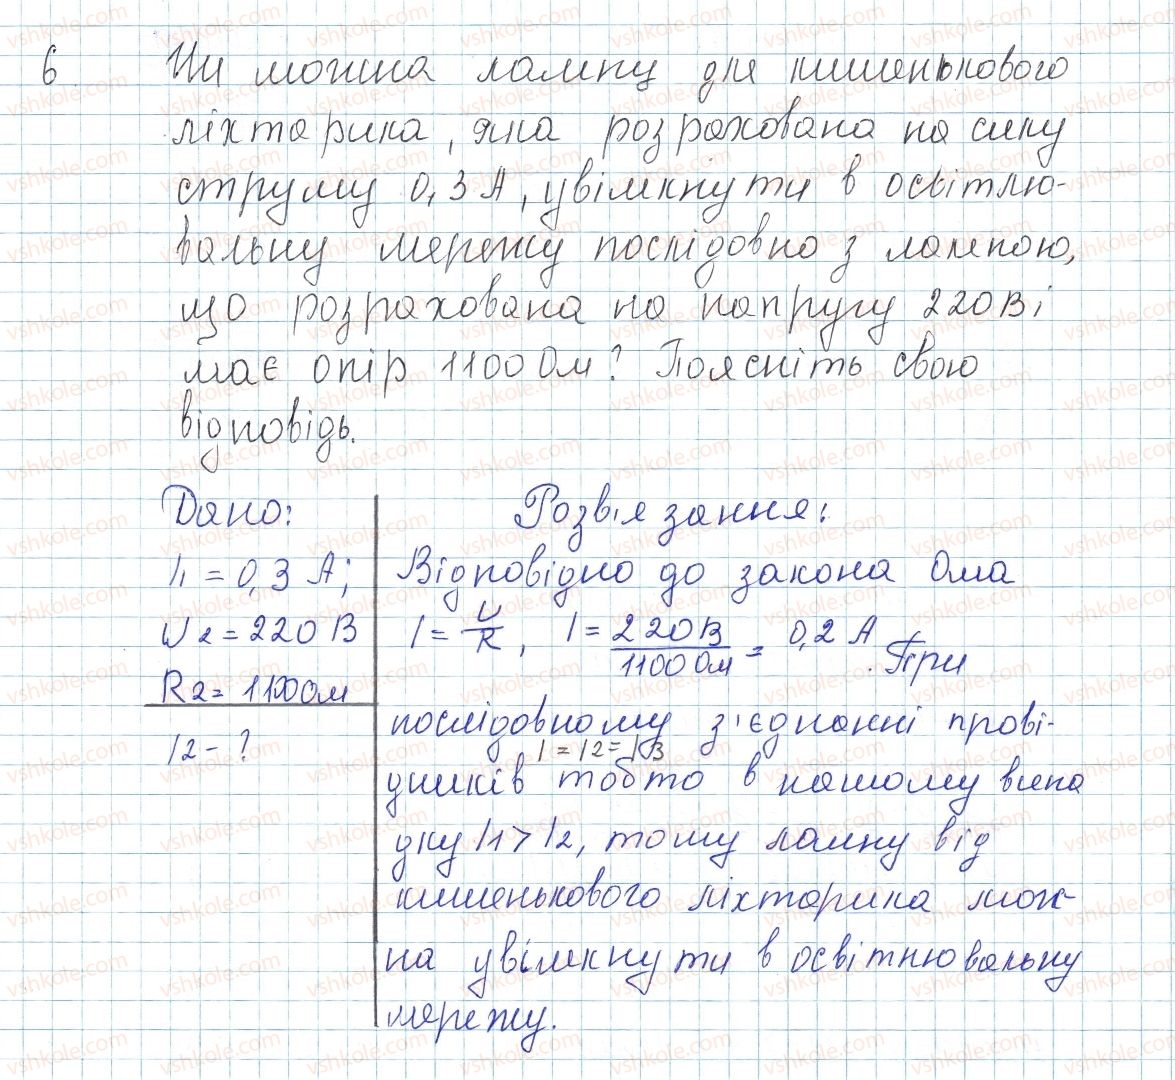 6
Чи можна лампу для кишенькового
ліхтарика, яка розрахована на силу
струму 0,3 А, увімкнути в освітлю-
вальну мережу послідовно з лампою,
що розрахована на напругу 220 В і
має опір 1100 Ом? Поясніть свою
відповідь.
Дано:
I1 = 0,3 А;
U2 = 220 В
R2 = 1100 Ом
I2 - ?
Розв'язання:
Відповідно до закона Ома
I = U/R, I = 220 В/1100 Ом = 0,2 А. При
послідовному з'єднанні прові-
I = I2 = IВ
дників тобто в нашому випа
дку I1 > I2, тому лампу від
кишенькового ліхтарика мож-
на увімкнути в освітнювальну
мережу.
vshkole.com